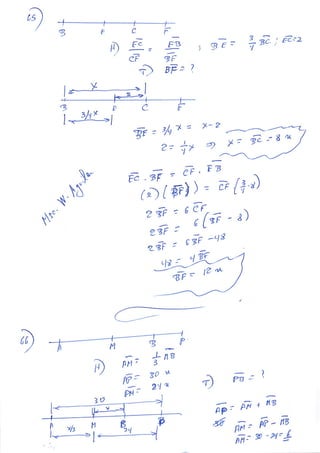 65)
B E C F
H) EC/CF = EB/BF ; BE = 3/4 BC ; EC=2
T) BF = ?
x
2
B E C F
3/4 x
BE = 3/4 x = x - 2
2 = 1/4 x ⇒ x = BC = 8 u
EC · BF = CF · EB
(2)(BF) = CF (3/4 · 8)
2 BF = 6 CF
2 BF = 6 (BF - 8)
2 BF = 6 BF - 48
48 = 4 BF
BF = 12 u
66)
A M B P
H) AM = 1/3 AB
AP = 30 u
PM = 24 u
T) PB = ?
30
x
A M B P
x/3 24
AP = AM + MB
AM = AP - MB
AM = 30 - 24 = 6